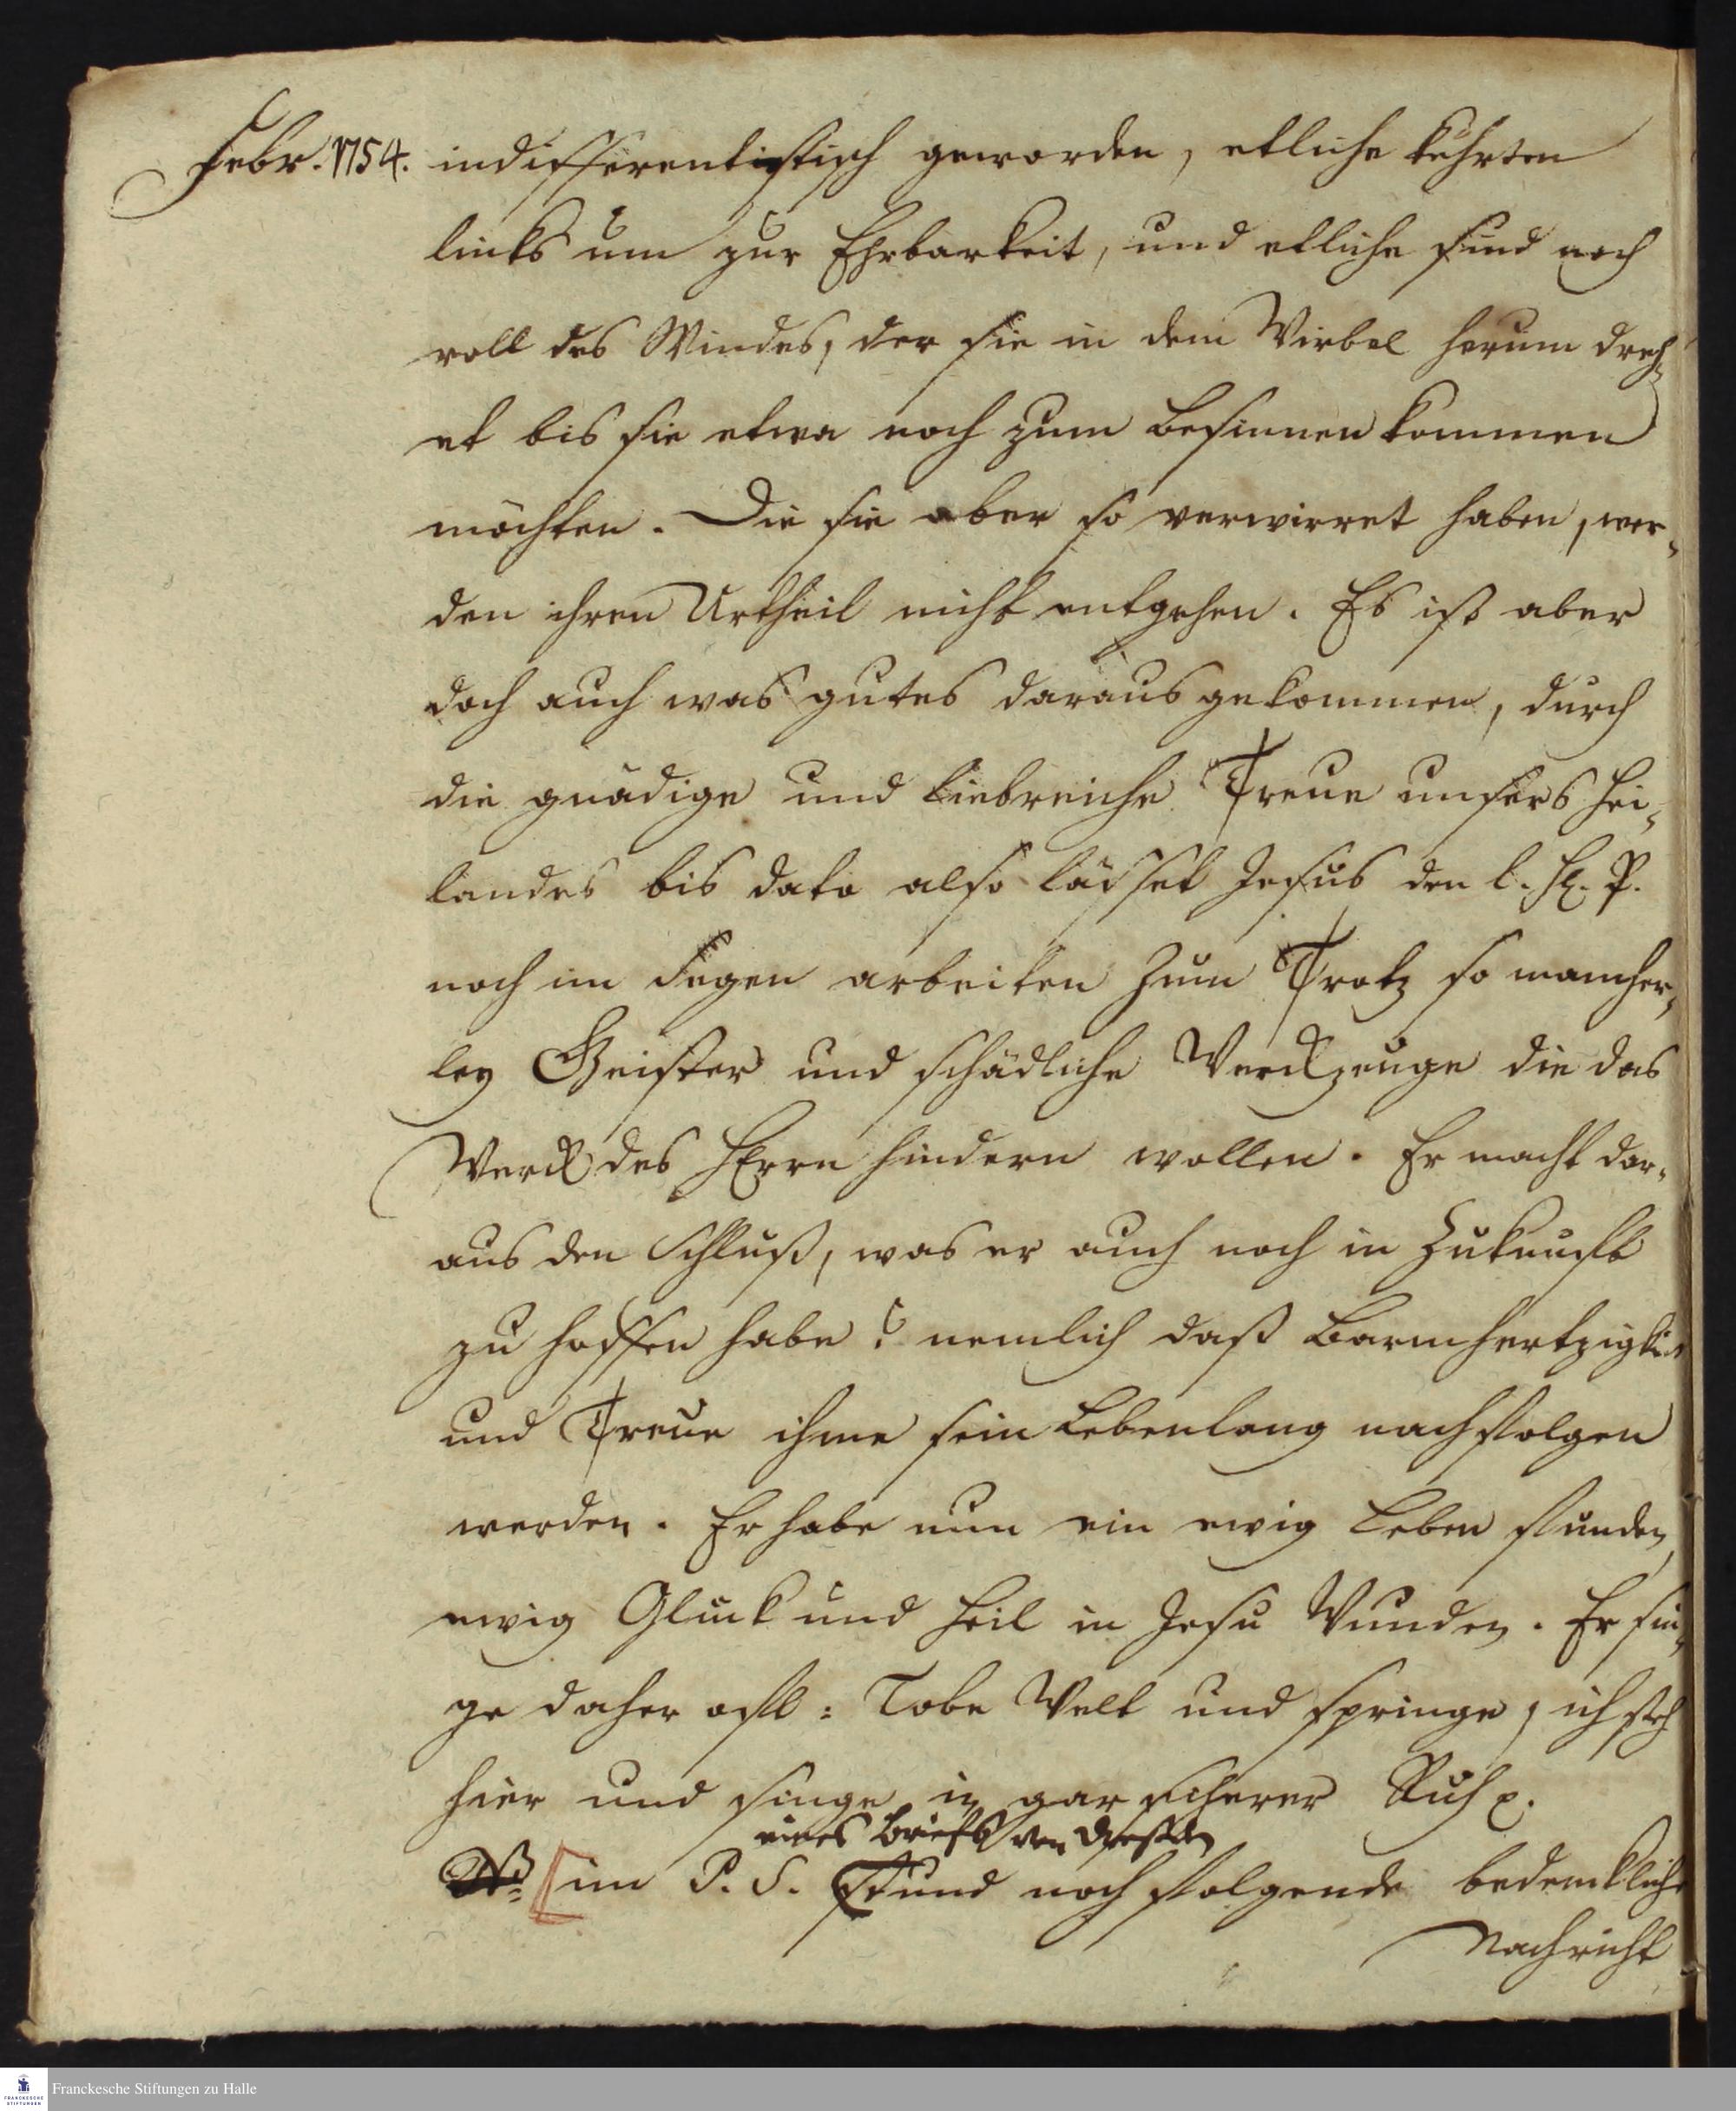 Febr. 1754. indifferentistisch geworden, etliche kehrten
links um zur Ehrbarkeit, und etliche sind noch
voll des Windes, der sie in dem Wirbel herum dreh¬
et bis sie etwa noch zum besinnen kommen
möchten. Die sie aber so verwirret haben, wer¬
den ihren Urtheil nicht entgehen. Es ist aber
doch auch was gutes daraus gekommen, durch
die gnädige und liebreiche Treue unsers Hei¬
landes bis dato also lässet Jesus den l. H. P.
noch im Segen arbeiten zum Trotz so mancher¬
ley Geister und schädliche Werckzeuge die das
Werck des HErrn hindern wollen. Er macht dar¬
aus den Schluß, was er auch noch in Zukunfft
zu hoffen habe? nemlich daß Barmhertzigkeit
und Treue ihme sein Lebenlang nachfolgen
werden. Er habe nun ein ewig Leben funden,
ewig Gluck und Heil in Jesu Wunden. Er sin¬
ge daher offt: Tobe Welt und springe, ich steh
hier und singe in gar sicherer Ruh p.
eines Briefs von Dresden
im P. S. Stund noch folgende bedenckliche
Nachricht
Franckesche Stiftungen zu Halle
FRANCKESCHE STIFTUNGEN